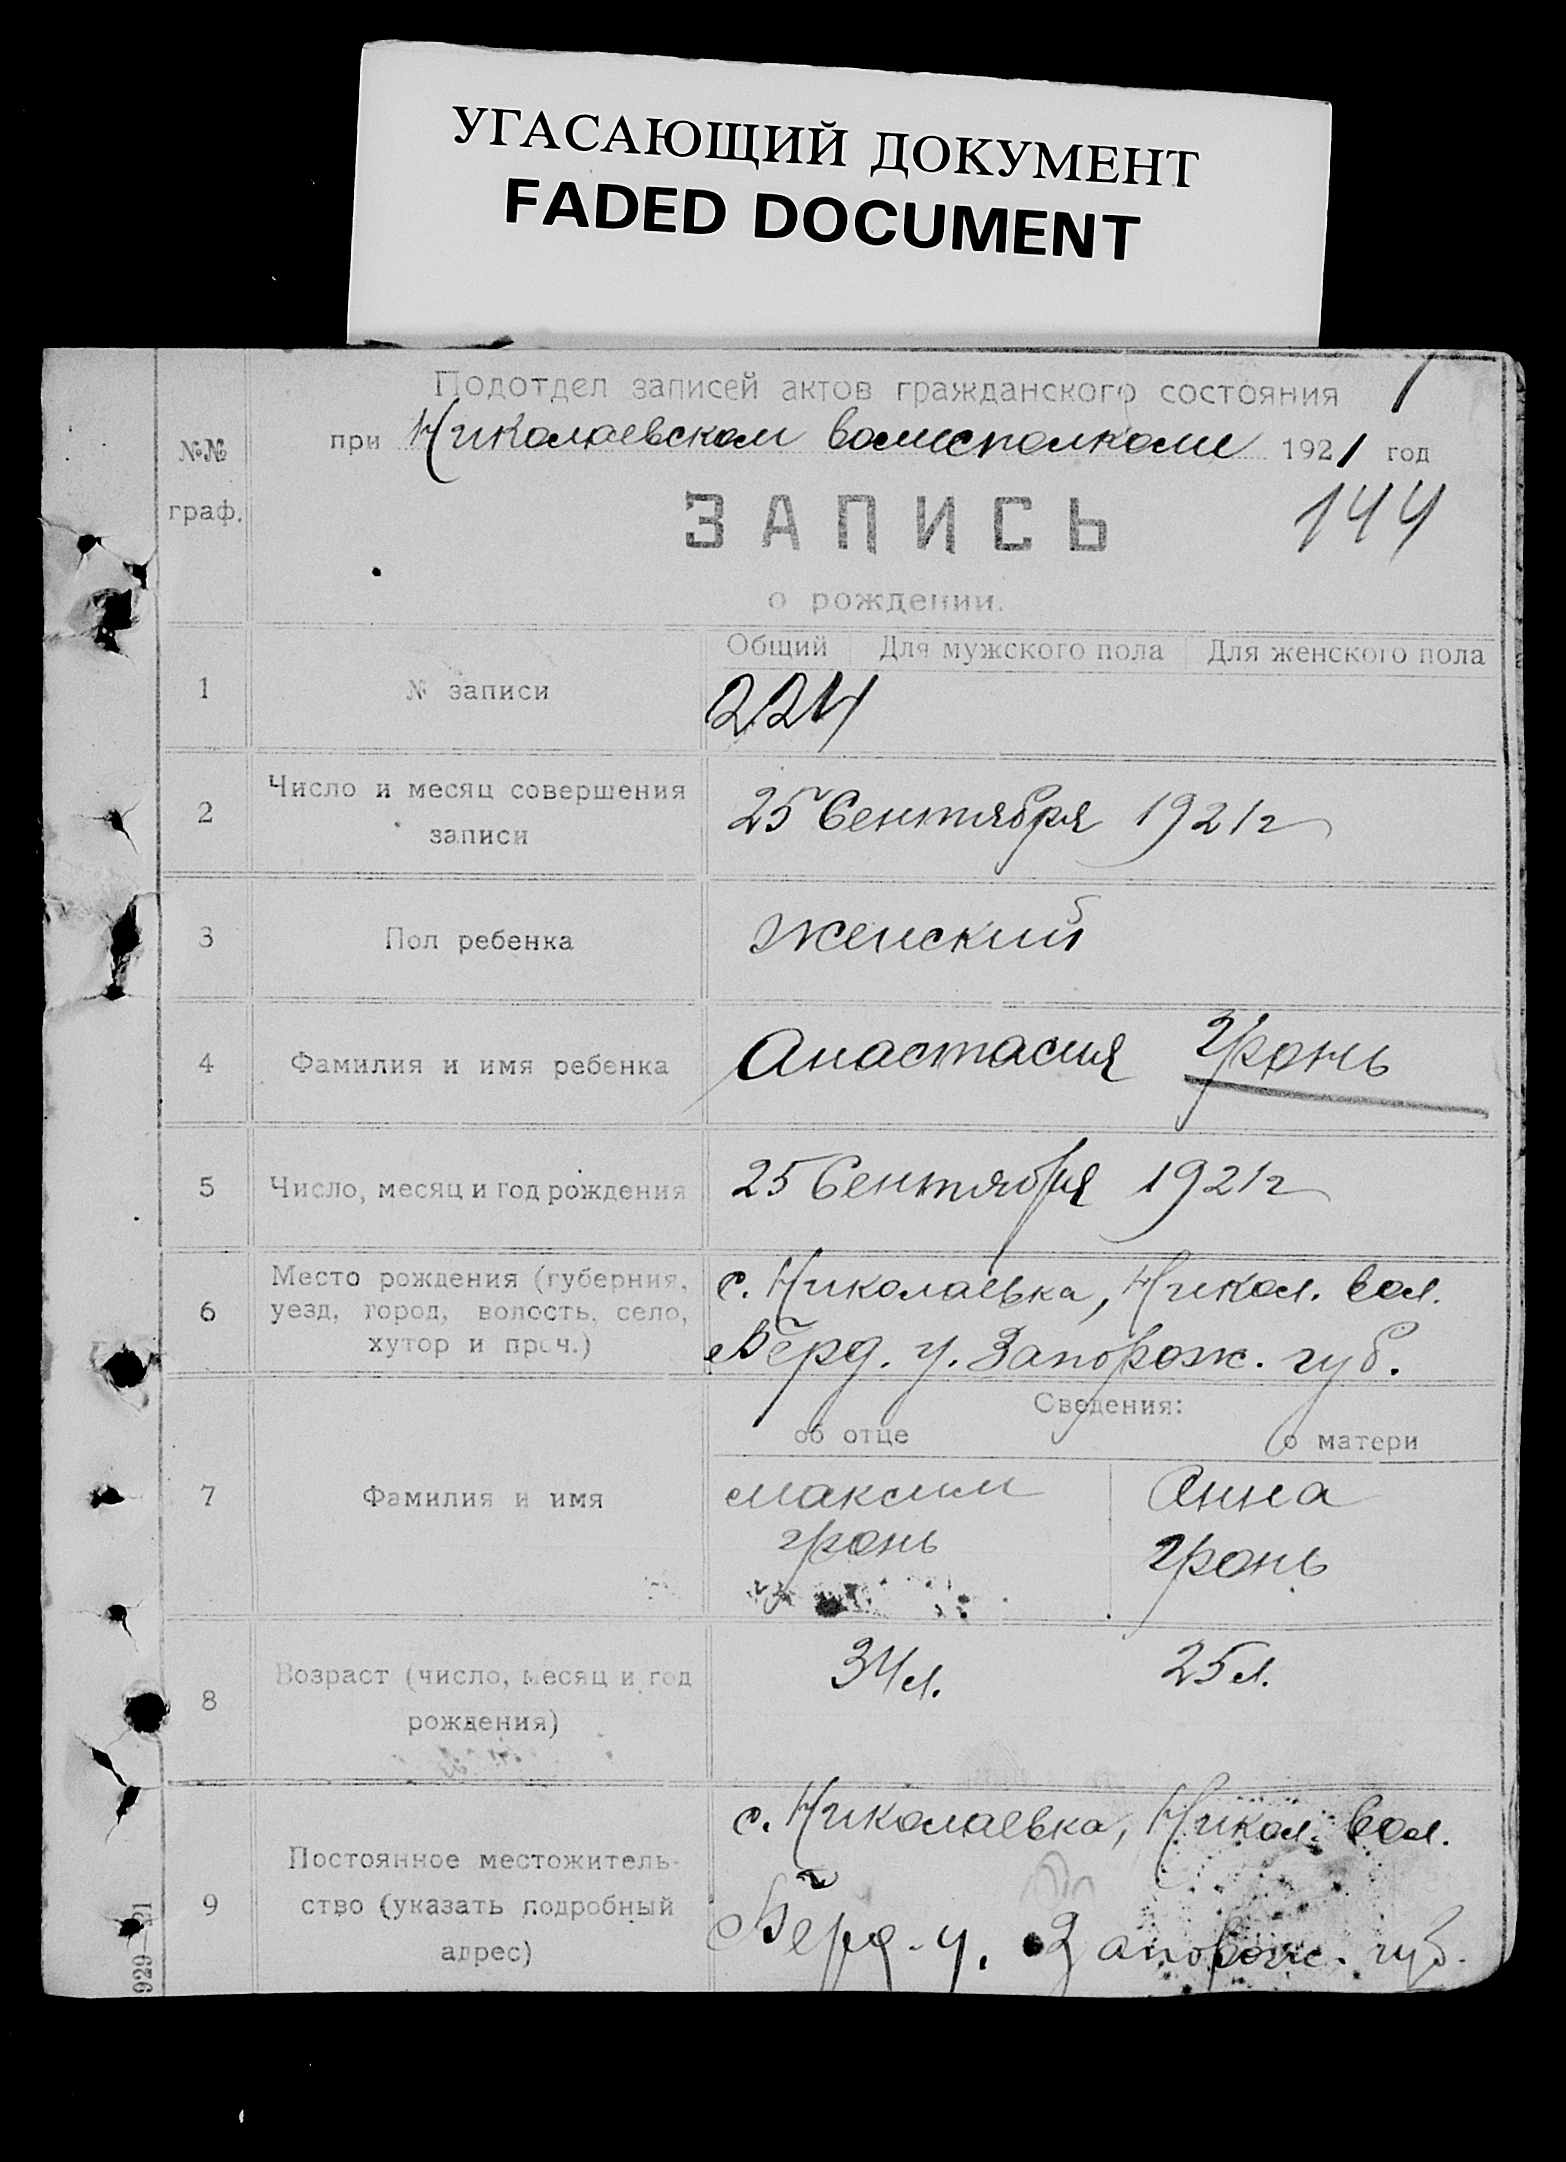 УГАСАЮЩИЙ ДОКУМЕНТ
FADED DOCUMENT
Подотдел записей актов гражданского состояния
при Николаевском волисполкоме 1921 год
№№
граф.
ЗАПИСЬ
144
о рождении.
Общий Для мужского пола Для женского пола
1 № записи 224
2 Число и месяц совершения
записи
25 Сентября 1921 г
3 Пол ребенка женский
4 Фамилия и имя ребенка Анастасия Гронь
5 Число, месяц и год рождения 25 Сентября 1921 г
6 Место рождения (губерния,
уезд, город, волость, село,
хутор и проч.)
с. Николаевка, Никол. вол.
Берд. у. Запорож. губ.
Сведения:
об отце о матери
7 Фамилия и имя
Максим Анна
Гронь Гронь
8 Возраст (число, месяц и год
рождения)
34 л. 25 л.
9 Постоянное местожитель-
ство (указать подробный
адрес)
с. Николаевка, Никол. вол.
Берд. у. Запорож. губ.
929—21